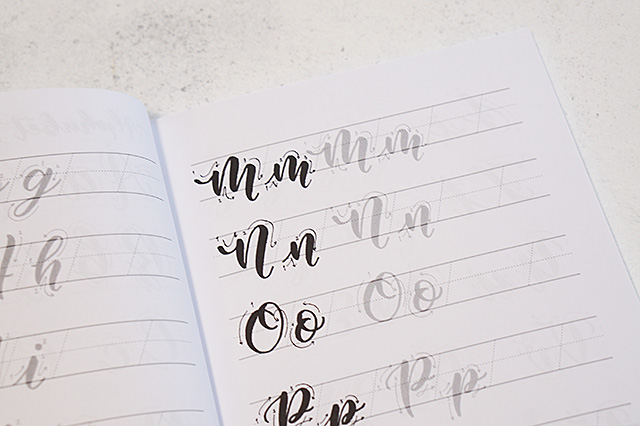 g
h
i
Mm Mm
Nn Nn
Oo Oo
Pp Pp